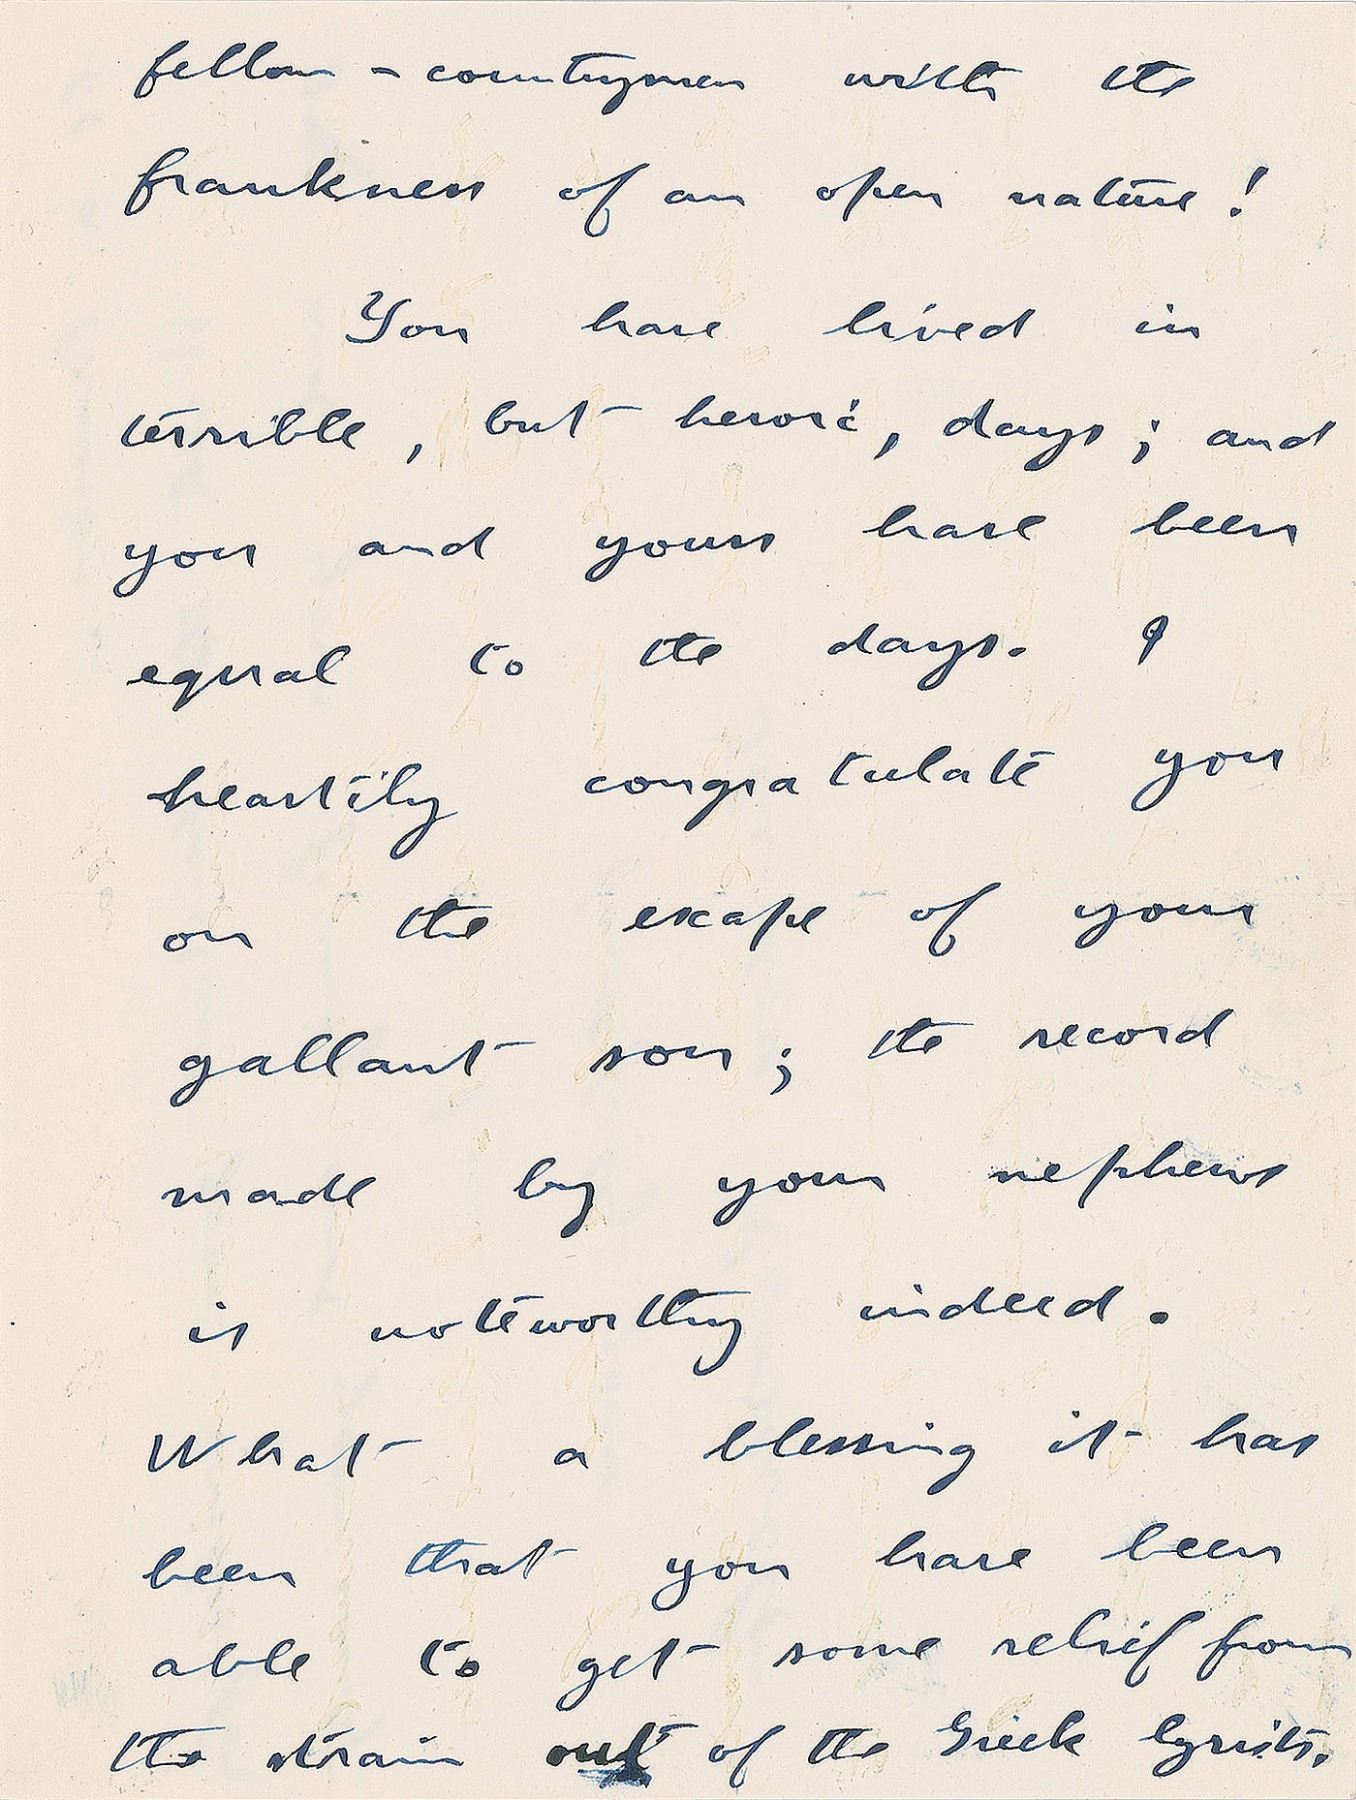 fellow-countrymen with the
frankness of an open nature!
You have lived in
terrible, but heroic, days; and
you and yours have been
equal to the days. I
heartily congratulate you
on the escape of your
gallant son; the record
made by your nephews
is noteworthy indeed.
What a blessing it has
been that you have been
able to get some relief from
the strain out of the Greek lyrists.